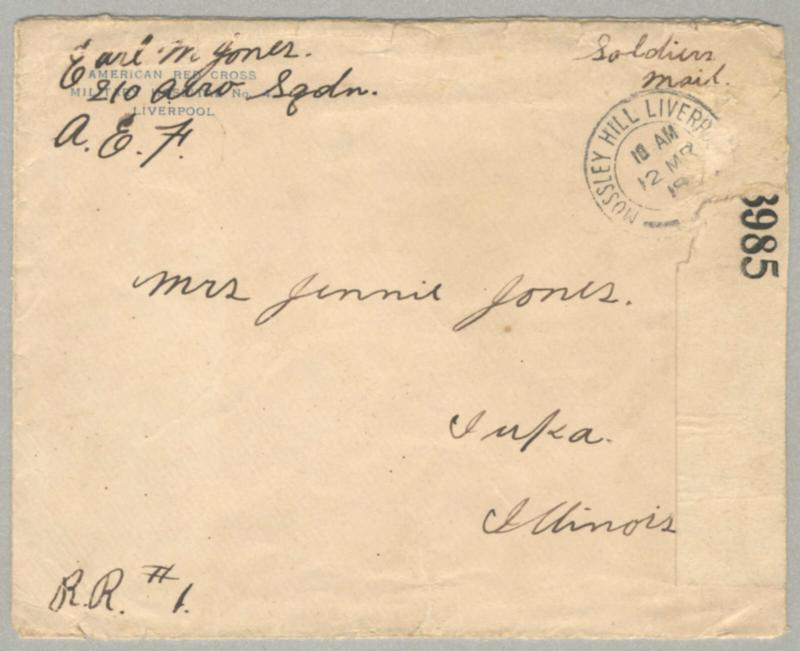 Earl M Jones.
AMERICAN RED CROSS
210 Aero Sqdn.
MILITARY HOSPITAL No.
LIVERPOOL
A. E. F.
Soldiers
Mail.
MOSSLEY HILL LIVERP
10 AM
12 MR
18
3985
Mrs Jennie Jones.
Iuka.
Illinois
R.R. # 1.